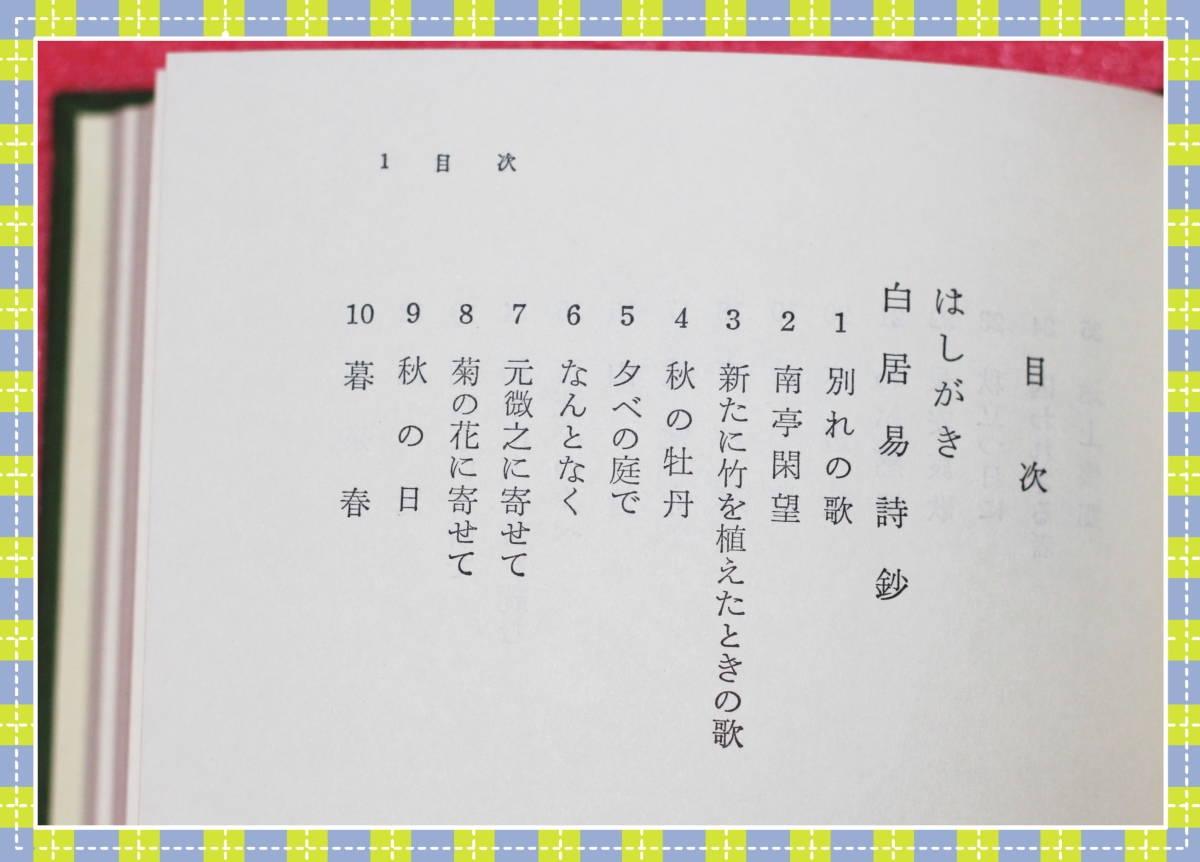 目次
はしがき
白居易詩鈔
1 別れの歌
2 南亭閑望
3 新たに竹を植えたときの歌
4 秋の牡丹
5 夕べの庭で
6 なんとなく
7 元微之に寄せて
8 菊の花に寄せて
9 秋の日
10 暮春
1 目次